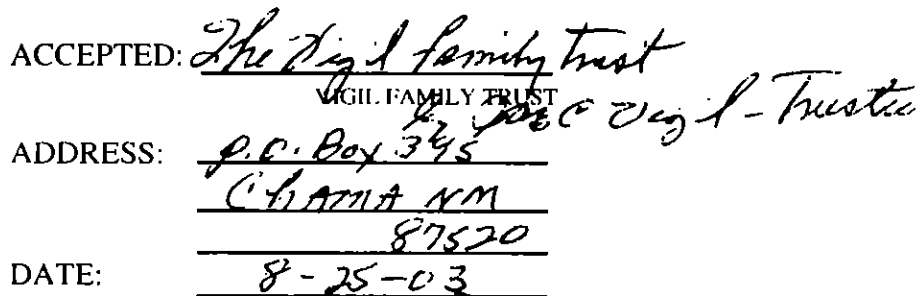 ACCEPTED: The Vigil Family Trust
VIGIL FAMILY TRUST
by Joe C Vigil - Trustee
ADDRESS: P.O. Box 345
CHAMA NM
87520
DATE: 8-25-03